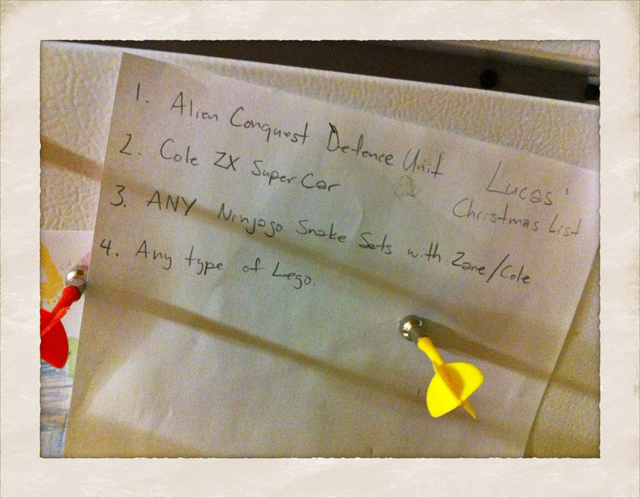 1. Alien Conquest Defence Unit
2. Cole ZX Super Car
3. ANY Ninjago Snake Sets with Zane/Cole
4. Any type of Lego
Lucas'
Christmas List